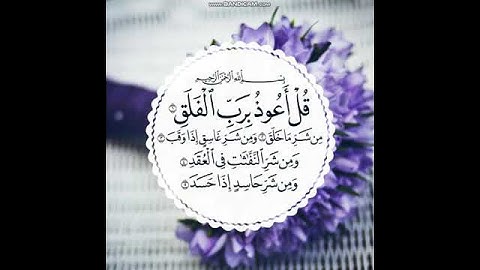 www.BANDICAM.com
بِسْمِ اللَّهِ الرَّحْمَٰنِ الرَّحِيمِ
قُلْ أَعُوذُ بِرَبِّ الْفَلَقِ ١
مِن شَرِّ مَا خَلَقَ ٢ وَمِن شَرِّ غَاسِقٍ إِذَا وَقَبَ ٣
وَمِن شَرِّ النَّفَّٰثَٰتِ فِي الْعُقَدِ ٤
وَمِن شَرِّ حَاسِدٍ إِذَا حَسَدَ ٥